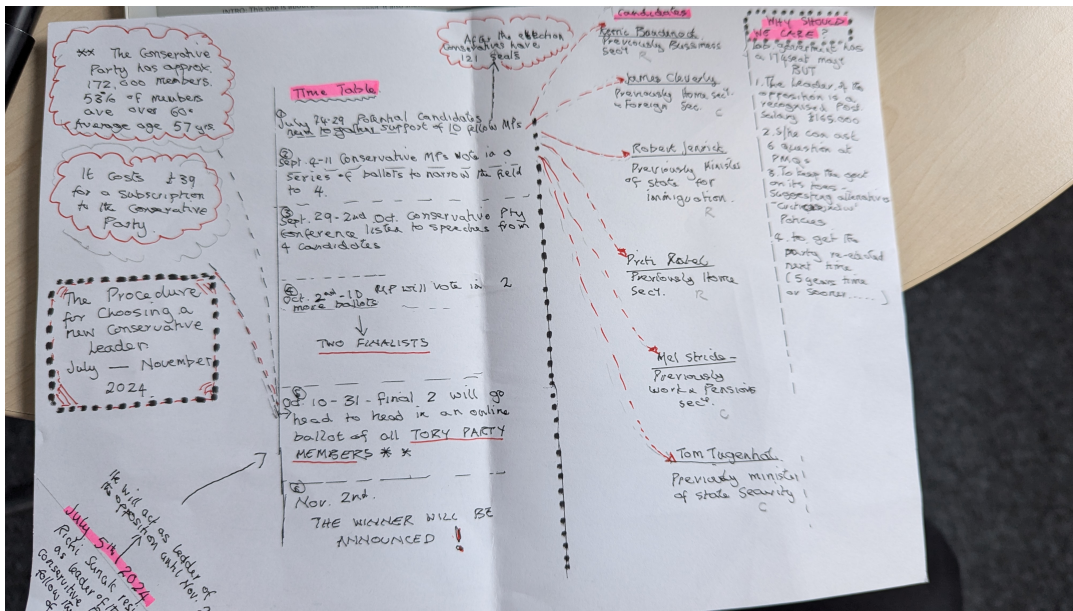 ** The Conserative
Party has approx.
172,000 members.
58% of members
are over 60.
Average age 57 yrs
It costs £39
for a subscription
to the Conserative
Party.
The Procedure
for Choosing a
new Conservative
Leader
July — November
2024.
He will act as leader of
the opposition until Nov.
July 5th 2024
Richi Sunak res
as leader of the
conservitive
follow
of
After the election
Conservatives have
121 seats
Time Table
① July 24-29 Potential Candidates
need to gather support of 10 fellow MPs
②
Sept. 4-11 Conservative MPs vote in a
series of ballots to narrow the field
to 4.
③
Sept. 29-2nd Oct. Conservative Pty
Conference listen to speeches from
4 candidates
④
Oct. 2nd-10 MP will vote in 2
more ballots
TWO FINALISTS
⑤
Oct. 10-31-final 2 will go
head to head in an online
ballot of all TORY PARTY
MEMBERS * *
⑥
Nov. 2nd.
THE WINNER WILL BE
ANNOUNCED !
Candidates
Previously Bussiness
Sect.
R
James Cleverly
Previously Home sect.
& Foreign Sec.
C
Robert Jenrick
Previously Minister
of state for
immiguation.
R
Previously Home
Sect.
R
Mel Stride-
Previously
work & Pensions
sect.
C
Tom Tugenhat
Previously minister
of state Security
C
WHY SHOULD
WE CARE?
a 174 seat majt
BUT
1. The Leader of the
opposition is a
recognised Post.
Salary £165,000
2. S/he can ask
6 question at
PMQs
3. To keep the govt
on its toes -
suggesting alternatives
Policies
4. to get the
party re-elected
next time
(5 years time
or sooner.....)